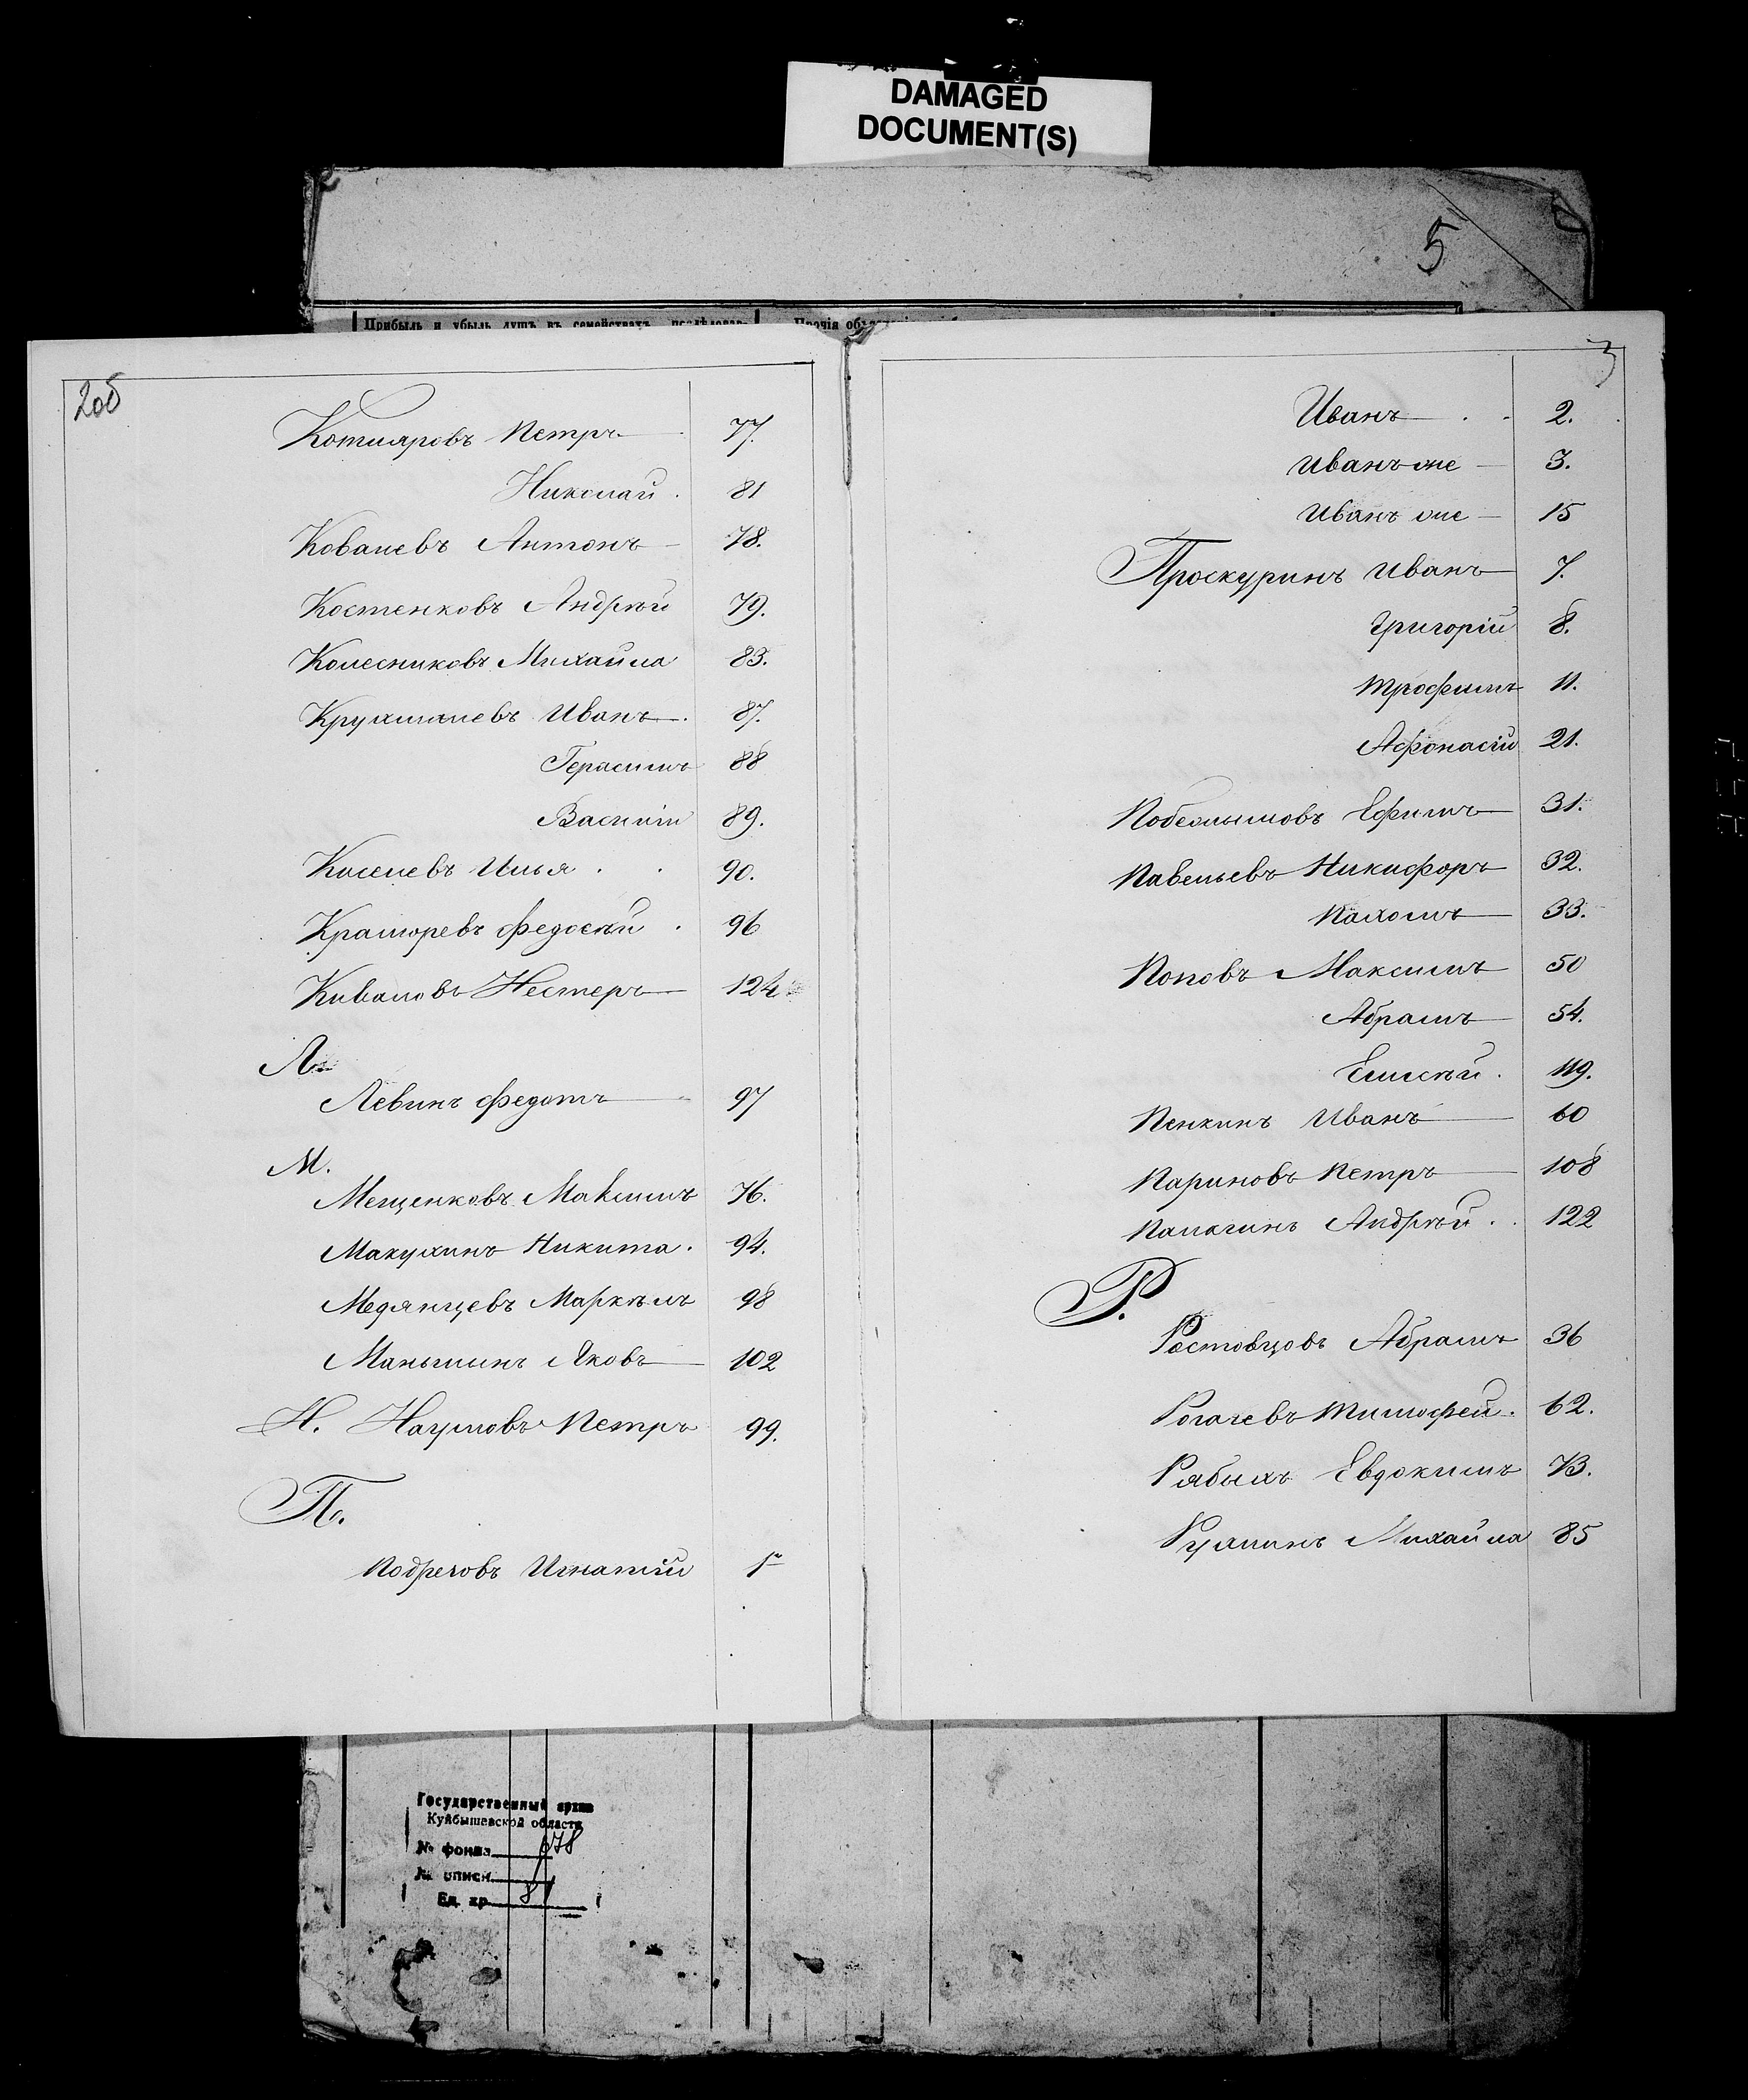 DAMAGED
DOCUMENT(S)
5
Прибыль и убыль душъ въ семействахъ
Прочія
2об
Котляровъ Петръ 77.
Николай 81
Ковалевъ Антонъ 78.
Костенковъ Андрѣй 79.
Колесниковъ Михайла 83.
Крухмалевъ Иванъ 87.
Герасимъ 88
Василій 89.
Киселевъ Илья 90.
Краморевъ Федосѣй 96
Киваловъ Нестеръ 124
Л.
Левинъ Федотъ 97
М.
Мещенковъ Максимъ 76.
Макухинъ Никита. 94.
Медянцевъ Маркѣлъ 98
Маньшинъ Яковъ 102
Н. Наумовъ Петръ 99.
П.
Подрезовъ Игнатій 1
3
Иванъ 2.
Иванъ же 3.
Иванъ же 15
Проскуринъ Иванъ 7.
Григорій 8.
Трофимъ 11.
Афонасій 21.
Ефимъ 31.
Павельевъ Никифоръ 32.
Пахомъ 33.
Поповъ Максимъ 50
Абрамъ 54.
Елисѣй 119.
Пенкинъ Иванъ 60
Париновъ Петръ 108
Палагинъ Андрѣй 122
Р.
Ростовцовъ Абрамъ 36
Рогачевъ Тимофей. 62.
Рябыхъ Евдокимъ 73.
Рухлинъ Михайла 85
Государственный архив
Куйбышевской области
№ фонда 678
№ описи
Ед. хр. 81